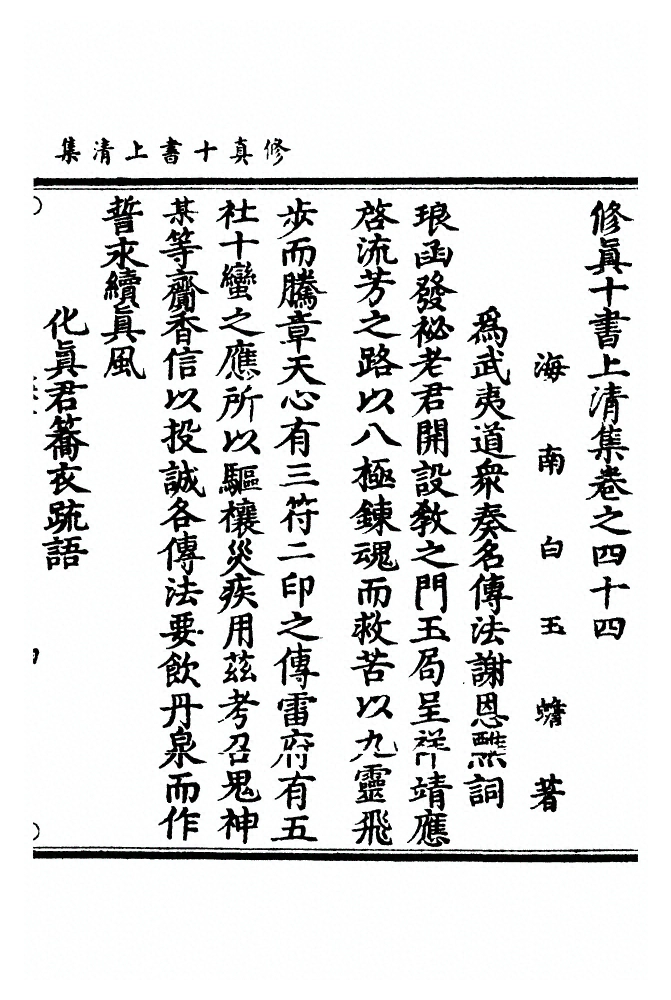 修真十書上清集
修眞十書上清集卷之四十四
海南白玉蟾著
爲武夷道衆奏名傳法謝恩醮詞
琅函發祕老君開設教之門玉局呈祥靖應
啓流芳之路以八極鍊魂而救苦以九靈飛
步而騰章天心有三符二印之傳雷府有五
社十蠻之應所以驅禳災疾用兹考召鬼神
某等齎香信以投誠各傳法要飲丹泉而作
誓永續眞風
化眞君簑衣疏語